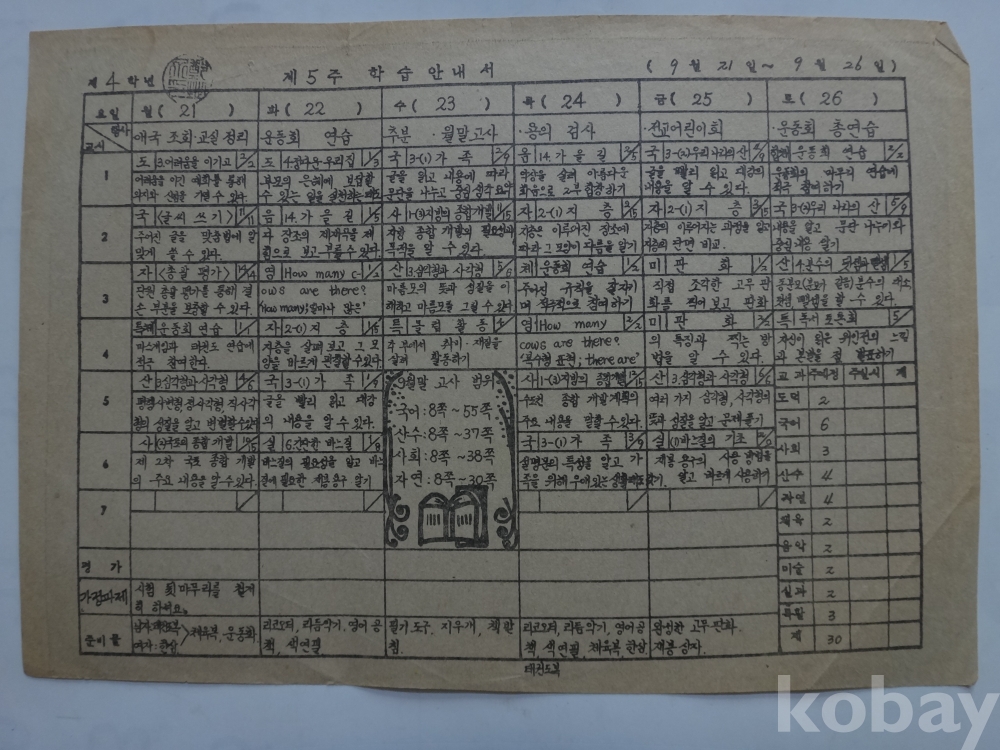 제 4 학년
제 5 주 학 습 안 내 서
( 9 월 21 일 ~ 9 월 26 일 )
요일 월 ( 21 ) 화 ( 22 ) 수 ( 23 ) 목 ( 24 ) 금 ( 25 ) 토 ( 26 )
행사 애국 조회·교실 정리 운동회 연습 추분 · 월말고사 ·용의 검사 ·전교어린이회 ·운동회 총연습
교시
1 도 3.어려움을 이기고 도 4. 우리집 1/3 국 3-(1) 가 족 2/9 음 14.가 을 길 2/5 국 3-(2)우리 나라의 산 운동회 연습 2/2
부모의 은혜에 보답할 글을 읽고 내용에 따라 악상을 살려 아름다운 글을 빨리 읽고 대강의 운동회의 마무리 연습에
수 있는 일을 문단을 나누고 중심 화음으로 2부 합창하기 내용을 알 수 있다. 적극 참여하기
2 국 (글씨 쓰기) 음 14.가 을 길 1/5 사 1-(3)지방의 종합개발 자 2-(1) 지 층 2/5 자 2-(1) 지 층 3/5 국 3-(2)우리 나라의 산
주어진 글을 맞춤법에 알 지방 종합 개발의 필요성과 지층은 이루어진 장소에 지층의 이루어지는 과정을 알고
맞게 쓸 수 있다. 힘으로 보고 부를 수 있다. 특색을 알 수 있다. 따라 그 모양이 다름을 알기 지층의 단면 비교.
3 자 <총괄 평가> 영 How many c- 1/2 산 3.삼각형과 사각형 5/6 체 운동회 연습 1/2 미 판 화 1/2 산 4.분수의 덧셈과 뺄셈 1/5
단원 총괄 평가를 통해 결 ows are there? 마름모의 뜻과 성질을 이 주어진 규칙을 잘 지키 직접 조각한 고무 판
는 부분을 보충할 수 있다. 'How many;얼마나 많은' 해하고 마름모를 그릴 수 있다. 며 적극적으로 참여하기 화를 찍어 보고 판화
4 특 운동회 연습 1/1 자 2-(1) 지 층 1/5 특 클 럽 활 동 4 영 How many 2/2 미 판 화 2/2 특 독서 토론회 5
마스게임과 태권도 연습에 지층을 살펴 보고 그 모 각 부에서 취미·재질을 cows are there? 의 특징과 찍는 방 자신이 읽은 위인전의 느낌
적극 참여한다. 양을 바르게 관찰할 수 있다. 살려 활동하기 '복수형 표현; there are' 법을 알 수 있다. 과 본받을 점 발표하기
5 산 3.삼각형과 사각형 4/6 국 3-(1) 가 족 1/9 사 1-(3)지방의 종합개발 산 3.삼각형과 사각형 6/6
평행사변형, 정사각형, 직사각 글을 빨리 읽고 대강 수도권 종합 개발계획의 여러 가지 삼각형, 사각형의
의 내용을 알 수 있다. 주요 내용을 말할 수 있다. 뜻과 성질을 알고 문제 풀기
9월말 고사 범위
국어:8쪽~55쪽
산수:8쪽~37쪽
사회:8쪽~38쪽
자연:8쪽~30쪽
6 사 (2)국토의 종합 개발 실 6.간단한 바느질 1/8 국 3-(1) 가 족 3/9 실 (1)바느질의 기초 2/8
제 2차 국토 종합 개발 바느질의 필요성을 알고 바느 설명문의 특성을 알고 가 재봉 용구의 사용 방법을
의 주요 내용을 알 수 있다. 질에 필요한 재봉 용구 알기 알고 바르게 사용하기
7
교 과 주예정 주실시 계
도덕 2
국어 6
사회 3
산수 4
자연 4
체육 2
음악 2
미술 2
실과 2
특활 3
계 30
평 가
가정과제 시험 뒷 마무리를 철저
히 하세요.
준비물 체육복, 운동화 리코오더, 리듬악기, 영어 공 필기 도구, 지우개, 책받 리코오더, 리듬악기, 영어공 완성한 고무 판화
여자:한삼 책, 색연필 침. 책, 색연필, 체육복, 한삼, 재봉 상자.
태권도복
kobay